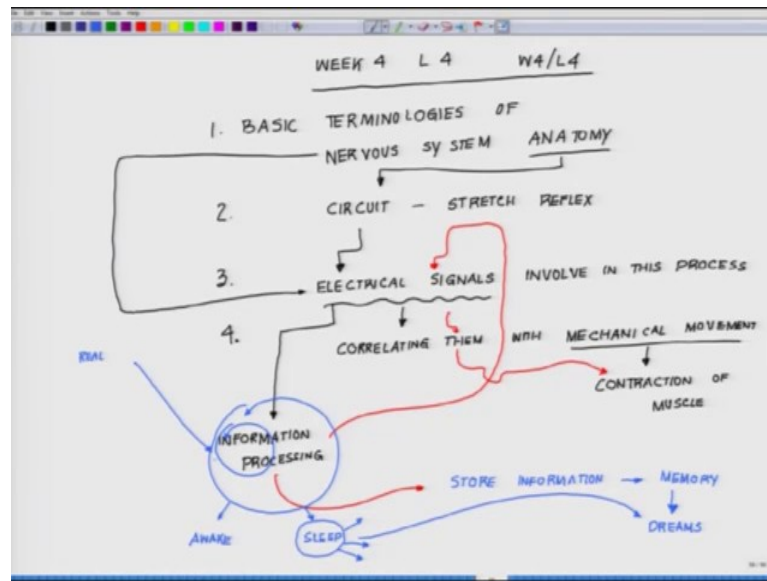 WEEK 4 L 4 W4/L4
1. BASIC TERMINOLOGIES OF
NERVOUS SYSTEM ANATOMY
2. CIRCUIT - STRETCH REFLEX
3. ELECTRICAL SIGNALS INVOLVE IN THIS PROCESS
4. CORRELATING THEM WITH MECHANICAL MOVEMENT
REAL
CONTRACTION OF
MUSCLE
INFORMATION
PROCESSING
STORE INFORMATION → MEMORY
DREAMS
AWAKE
SLEEP